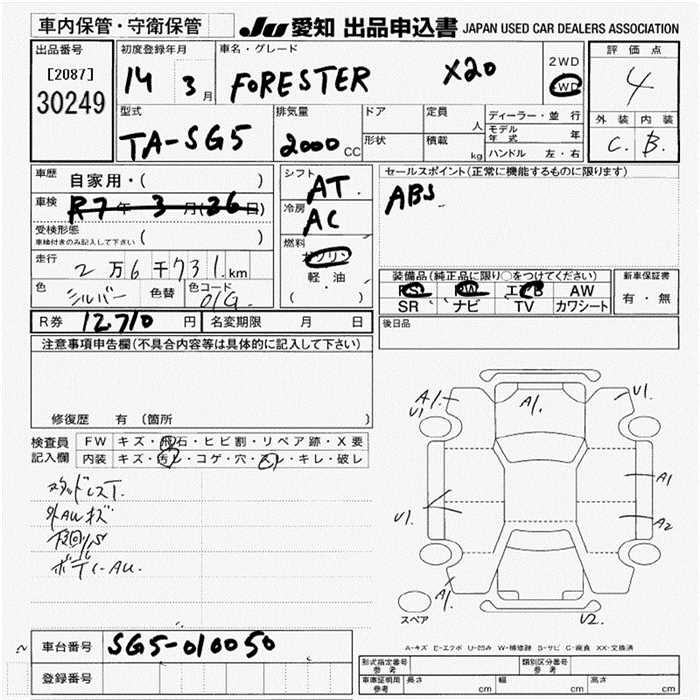 車内保管・守衛保管
JU 愛知 出品申込書 JAPAN USED CAR DEALERS ASSOCIATION
出品番号
[2087]
30249
初度登録年月
14 3月
車名・グレード
FORESTER X20
2WD
4WD
評価点
4
外装 内装
C. B.
型式
TA-SG5
排気量
2000 CC
ドア
形状
定員
人
積載
kg
ディーラー・並行
モデル年式 年
ハンドル 左・右
車歴 自家用・( )
車検 R7年 3月(26日)
受検形態
車検付きのみ記入して下さい ( )
走行 2万6千731km
色 シルバー 色替 色コード 01G.
シフト AT.
冷房 AC
燃料 ガソリン
軽・油
( )
セールスポイント(正常に機能するものに限ります)
ABS
装備品(純正品に限り○をつけてください)
PS PW エアB AW
SR ナビ TV カワシート
新車保証書
有・無
R券 12,710円 名変期限 月 日
後日品
注意事項申告欄(不具合内容等は具体的に記入して下さい)
修復歴 有 (箇所 )
検査員記入欄
FW キズ・飛石・ヒビ割・リペア跡・X要
内装 キズ・汚レ・コゲ・穴・スレ・キレ・破レ
スタッドレスT.
外AWキズ
下回り
ボディ
A1.
U1
A1.
U1.
A1
A2
U1.
A1.
U2.
スペア
A-キズ E-エクボ U-凹み W-補修跡 S-サビ C-腐食 XX-交換済
車台番号 SG5-010050
登録番号
形式指定番号 参考
類別区分番号 参考
車庫証明用 参考 長さ cm 幅 cm 高さ cm